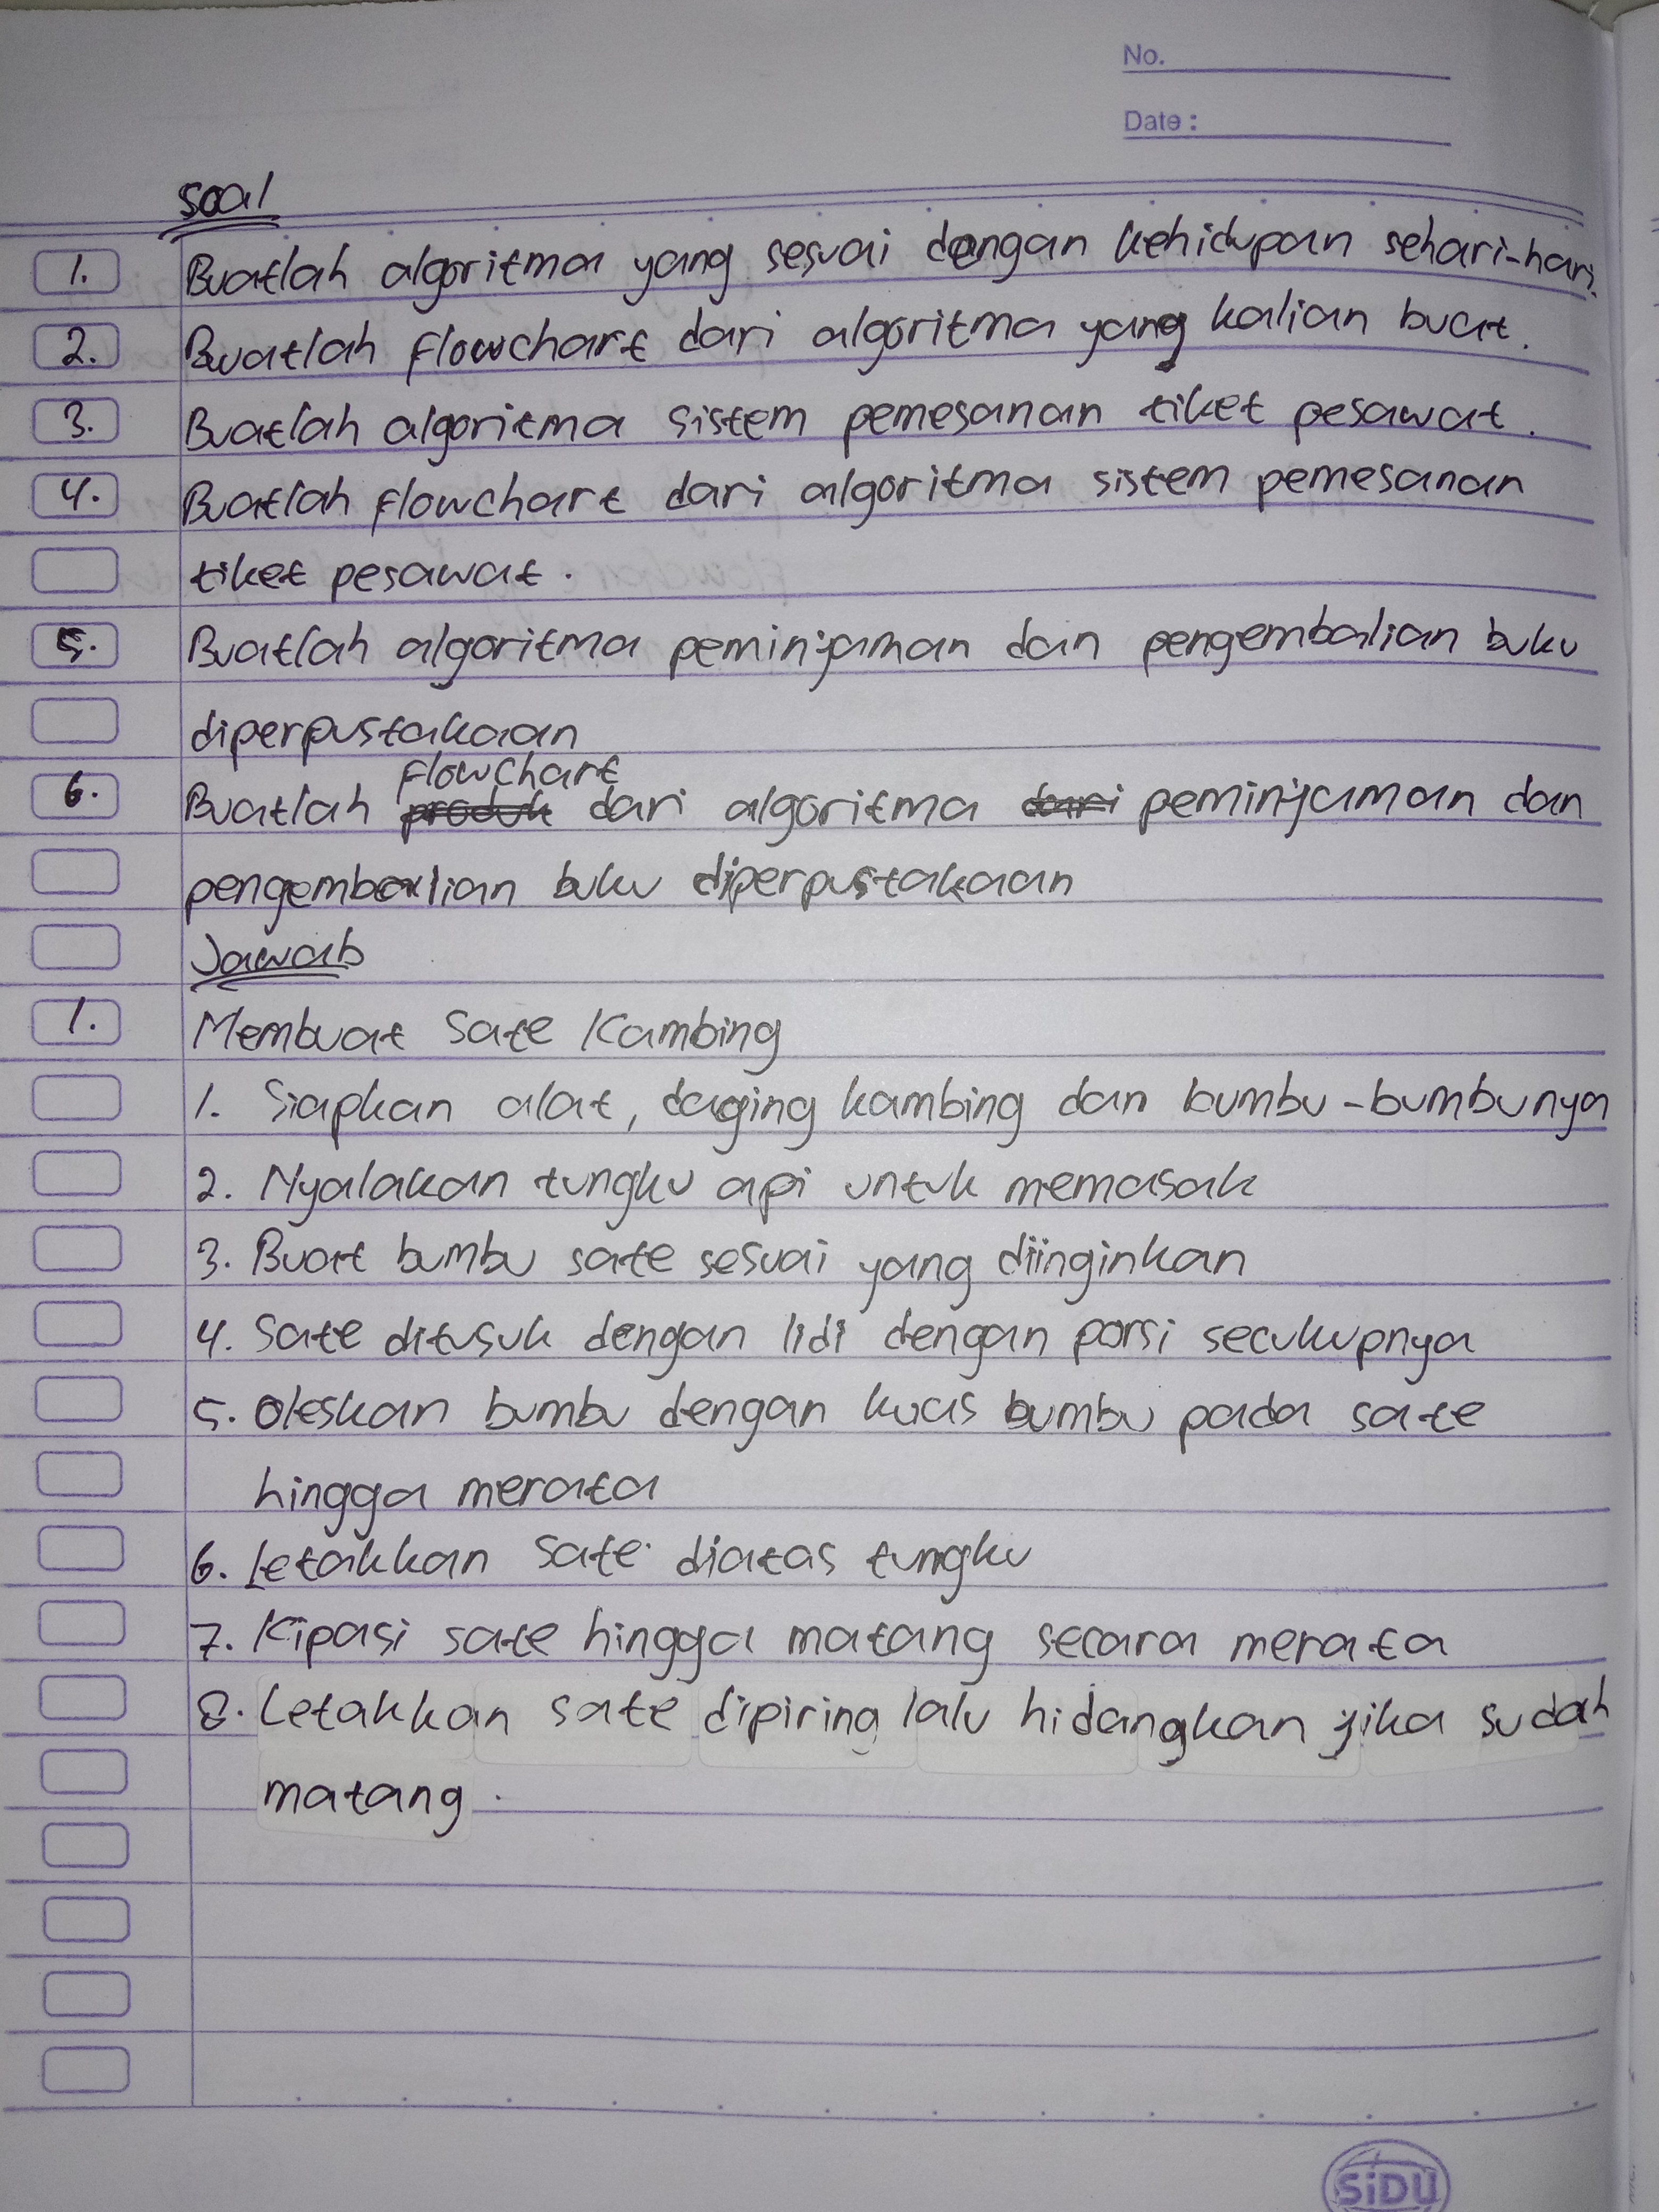 No.
Date :
soal
1. Buatlah algoritma yang sesuai dengan kehidupan sehari-hari.
2. Buatlah flowchart dari algoritma yang kalian buat.
3. Buatlah algoritma sistem pemesanan tiket pesawat.
4. Buatlah flowchart dari algoritma sistem pemesanan
tiket pesawat.
5. Buatlah algoritma peminjaman dan pengembalian buku
diperpustakaan
flowchart
6. Buatlah produk dari algoritma dari peminjaman dan
pengembalian buku diperpustakaan
Jawab
1. Membuat Sate Kambing
1. Siapkan alat, daging kambing dan bumbu-bumbunya
2. Nyalakan tungku api untuk memasak
3. Buat bumbu sate sesuai yang diinginkan
4. Sate ditusuk dengan lidi dengan porsi secukupnya
5. Oleskan bumbu dengan kuas bumbu pada sate
hingga merata
6. Letakkan sate diatas tungku
7. Kipasi sate hingga matang secara merata
8. Letakkan sate dipiring lalu hidangkan jika sudah
matang.
SiDU